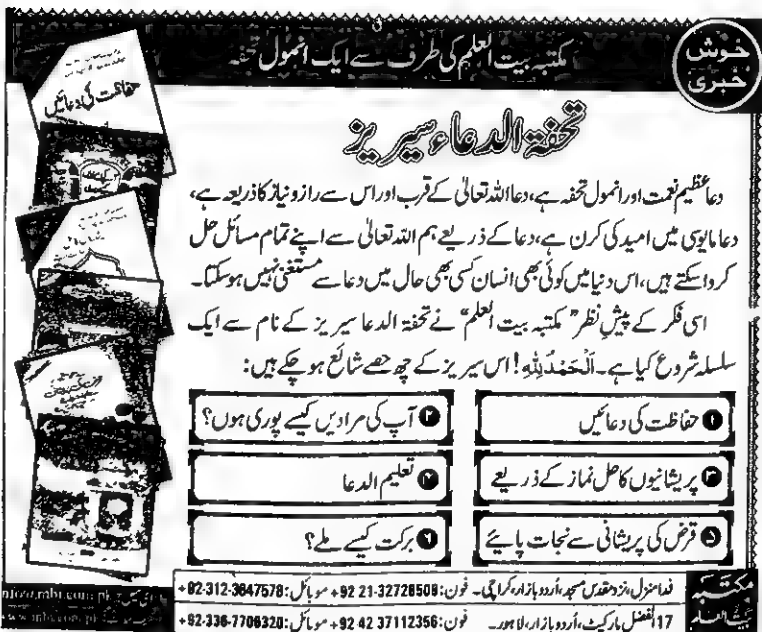 خوش خبری
مکتبہ بیت العلم کی طرف سے ایک انمول تحفہ
تحفۃ الدعاء سیریز
دعا عظیم نعمت اور انمول تحفہ ہے، دعا اللہ تعالیٰ کے قرب اور اس سے راز و نیاز کا ذریعہ ہے،
دعا مایوسی میں امید کی کرن ہے، دعا کے ذریعے ہم اللہ تعالیٰ سے اپنے تمام مسائل حل
کرواسکتے ہیں، اس دنیا میں کوئی بھی انسان کسی بھی حال میں دعا سے مستغنی نہیں ہوسکتا۔
اسی فکر کے پیشِ نظر "مکتبہ بیت العلم" نے تحفۃ الدعا سیریز کے نام سے ایک
سلسلہ شروع کیا ہے۔ اَلْحَمْدُلِلّٰہِ! اس سیریز کے چھ حصے شائع ہوچکے ہیں:
۱ حفاظت کی دعائیں
۲ آپ کی مرادیں کیسے پوری ہوں؟
۳ پریشانیوں کا حل نماز کے ذریعے
۴ تعلیم الدعا
۵ قرض کی پریشانی سے نجات پایئے
۶ برکت کیسے ملے؟
مکتبہ بیت العلم
فدا منزل، نزد مقدس مسجد، اُردو بازار، کراچی۔ فون: +92 21-32726509 موبائل: +92-312-3647578
17 الفضل مارکیٹ، اُردو بازار، لاہور۔ فون: +92 42 37112356 موبائل: +92-336-7706320
حفاظت کی دعائیں